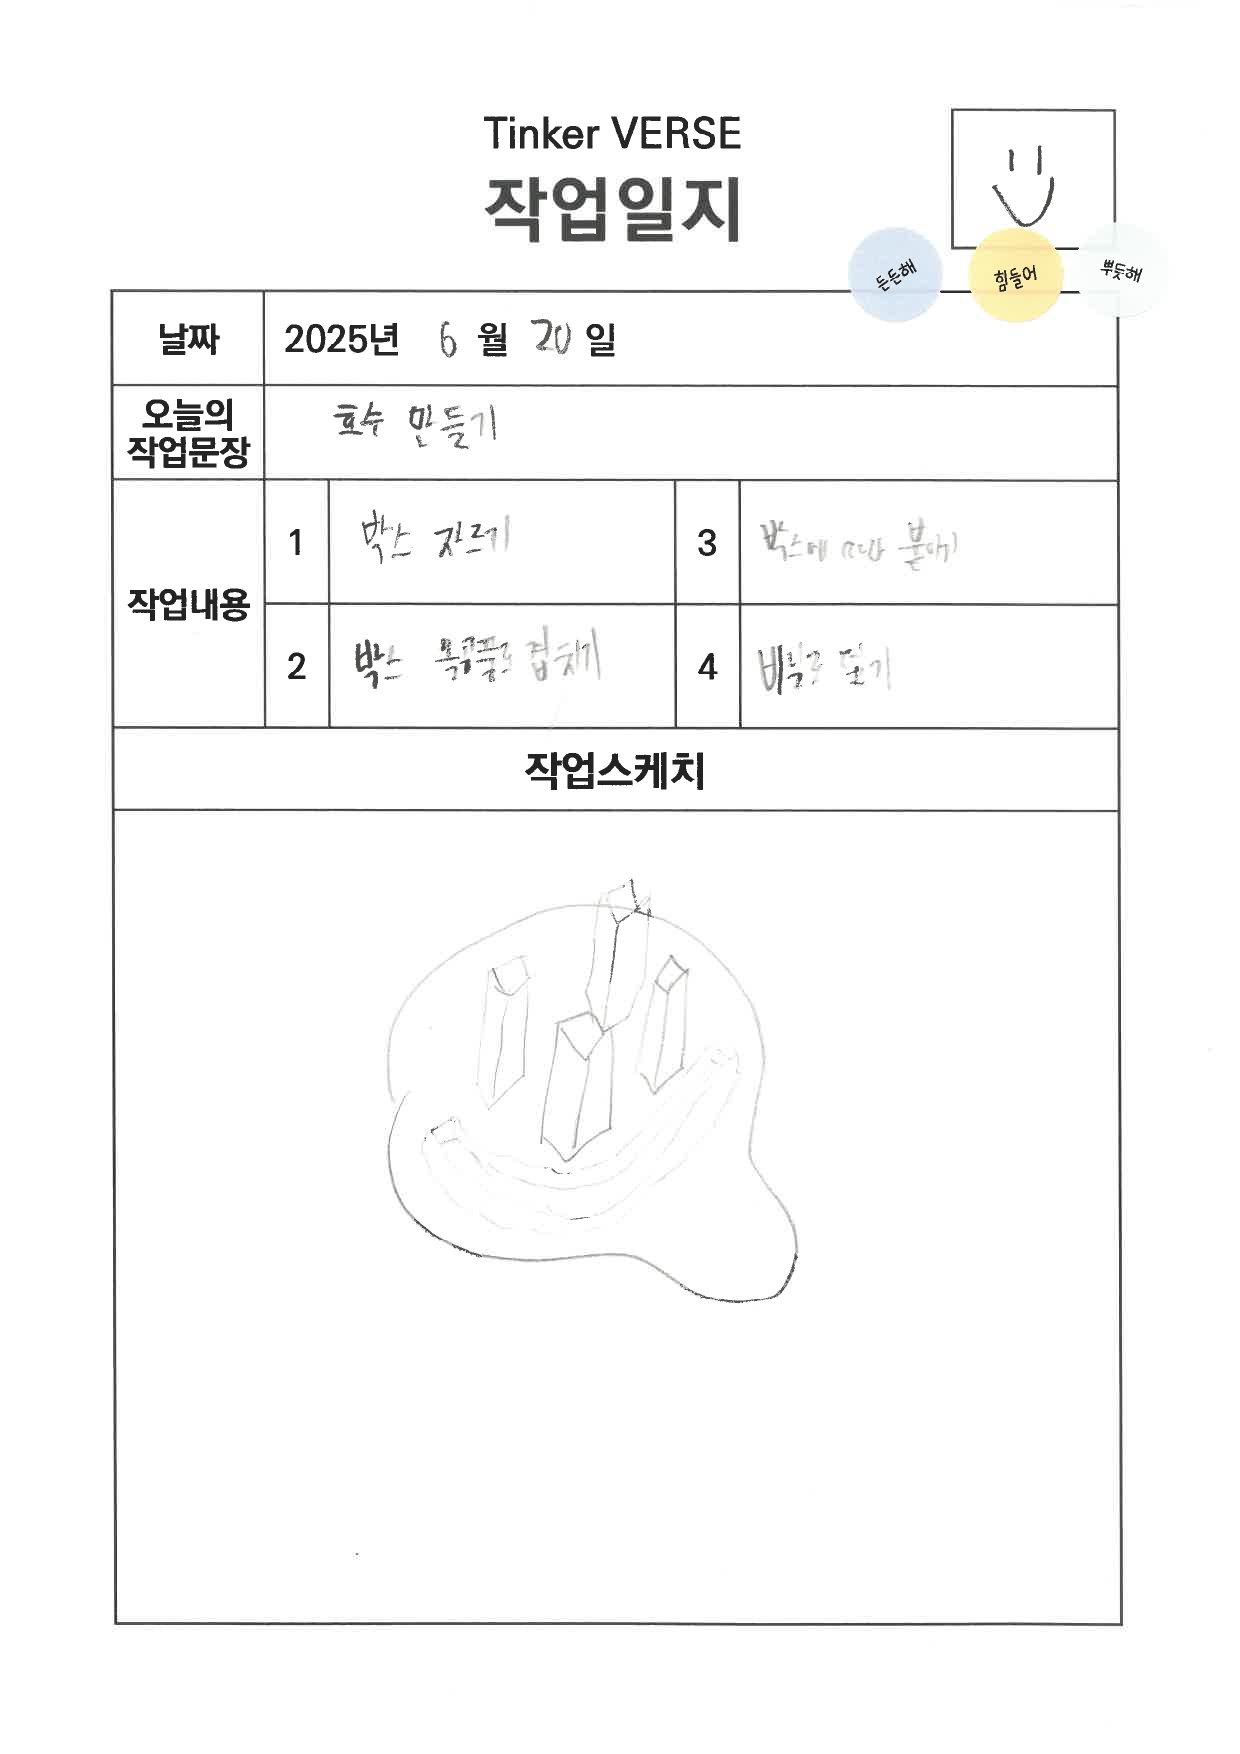 Tinker VERSE
작업일지
든든해 힘들어 뿌듯해
날짜 2025년 6 월 20 일
오늘의 작업문장 호수 만들기
작업내용
1 박스 자르기
2 박스 목공풀로 겹치기
3 박스에 붙이기
4 비닐로 덮기
작업스케치